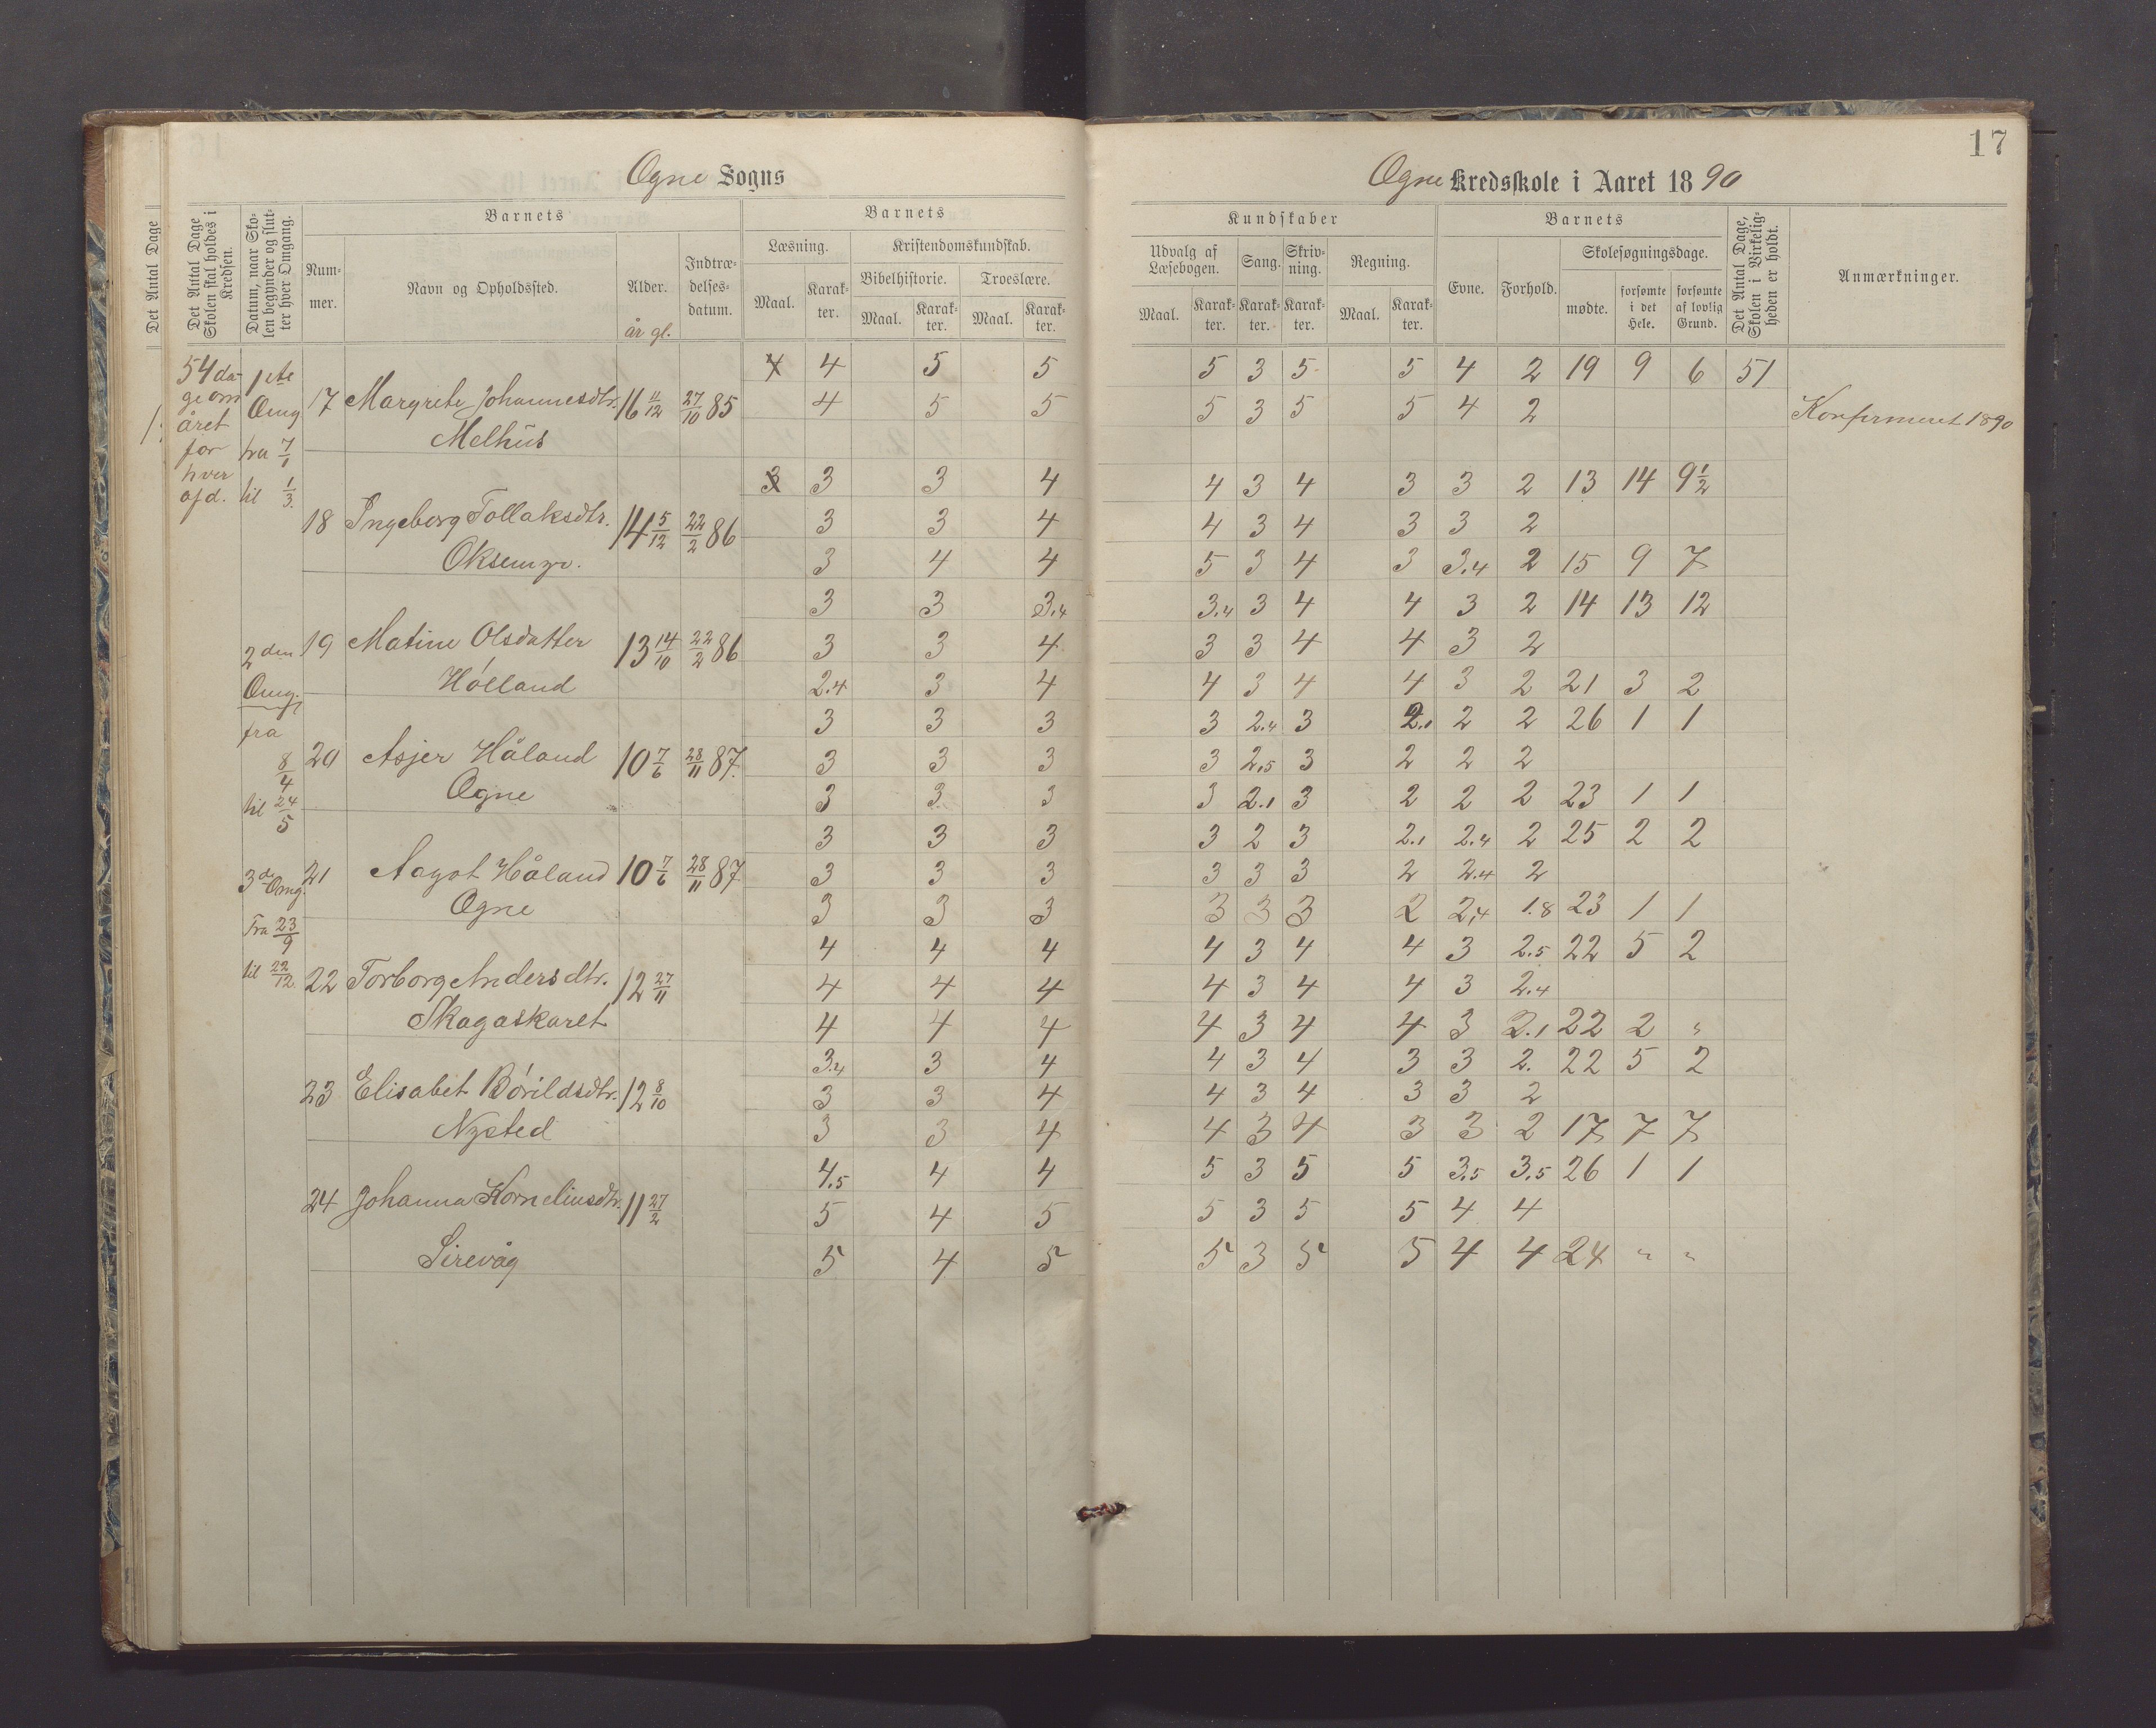 17
Ogne Sogns
Ogne Kredsskole i Aaret 1890
Det Antal Dage
Det Antal Dage Skolen skal holdes i Kredsen.
Datum, naar Skolen begynder og slutter hver Omgang.
Barnets
Nummer.
Navn og Opholdssted.
Alder.
år gl.
Indtrædelsesdatum.
Barnets
Læsning.
Maal.
Karakter.
Kristendomskundskab.
Bibelhistorie.
Maal.
Karakter.
Troeslære.
Maal.
Karakter.
Kundskaber
Udvalg af Læsebogen.
Maal.
Karakter.
Sang.
Karakter.
Skrivning.
Karakter.
Regning.
Maal.
Karakter.
Barnets
Evne.
Forhold.
Skolesøgningsdage.
mødte.
forsømte i det Hele.
forsømte af lovlig Grund.
Det Antal Dage, Skolen i Virkeligheden er holdt.
Anmærkninger.
54 dage om året for hver afd.
1ste Omg fra 7/1 til 1/3.
2den Omg. fra 8/4 til 24/5
3de Omg. Fra 23/9 til 22/12.
4 5 5 5 3 5 5 4 2 19 9 6 51
17 Margrete Johannesdtr. 16 11/12 27/10 85 4 5 5 5 3 5 5 4 2 Konfirmeret 1890
Melhus
3 3 4 4 3 4 3 3 2 13 14 9½
18 Ingeborg Tollaksdtr. 14 5/12 22/2 86 3 3 4 4 3 4 3 3 2
Oksemyr. 3 4 4 5 3 4 3 3.4 2 15 9 7
3 3 3.4 3.4 3 4 4 3 2 14 13 12
19 Matine Olsdatter 13 14/10 22/2 86 3 3 4 3 3 4 4 3 2
Hólland 2.4 3 4 4 3 4 4 3 2 21 3 2
3 3 3 3 2.4 3 2.1 2 2 26 1 1
20 Asjer Håland 10 7/6 28/11 87. 3 3 3 3 2.5 3 2 2 2
Ogne 3 3 3 3 2.1 3 2 2 2 23 1 1
3 3 3 3 2 3 2.1 2.4 2 25 2 2
21 Aagot Håland 10 7/6 28/11 87 3 3 3 3 3 3 2 2.4 2
Ogne 3 3 3 3 3 3 2 2.4 1.8 23 1 1
4 4 4 4 3 4 4 3 2.5 22 5 2
22 Torborg Andersdtr. 12 27/11 4 4 4 4 3 4 4 3 2.4
Skagaskaret 4 4 4 4 3 4 4 3 2.1 22 2 "
3.4 3 4 4 3 4 3 3 2. 22 5 2
23 Elisabet Bórildsdtr. 12 8/10 3 3 4 4 3 4 3 3 2
Nysted 3 3 4 4 3 4 3 3 2 17 7 7
4.5 4 4 5 3 5 5 3.5 3.5 26 1 1
24 Johanna Korneliusdtr. 11 27/2 5 4 5 5 3 5 5 4 4
Sirevåg 5 4 5 5 3 5 5 4 4 24 " "